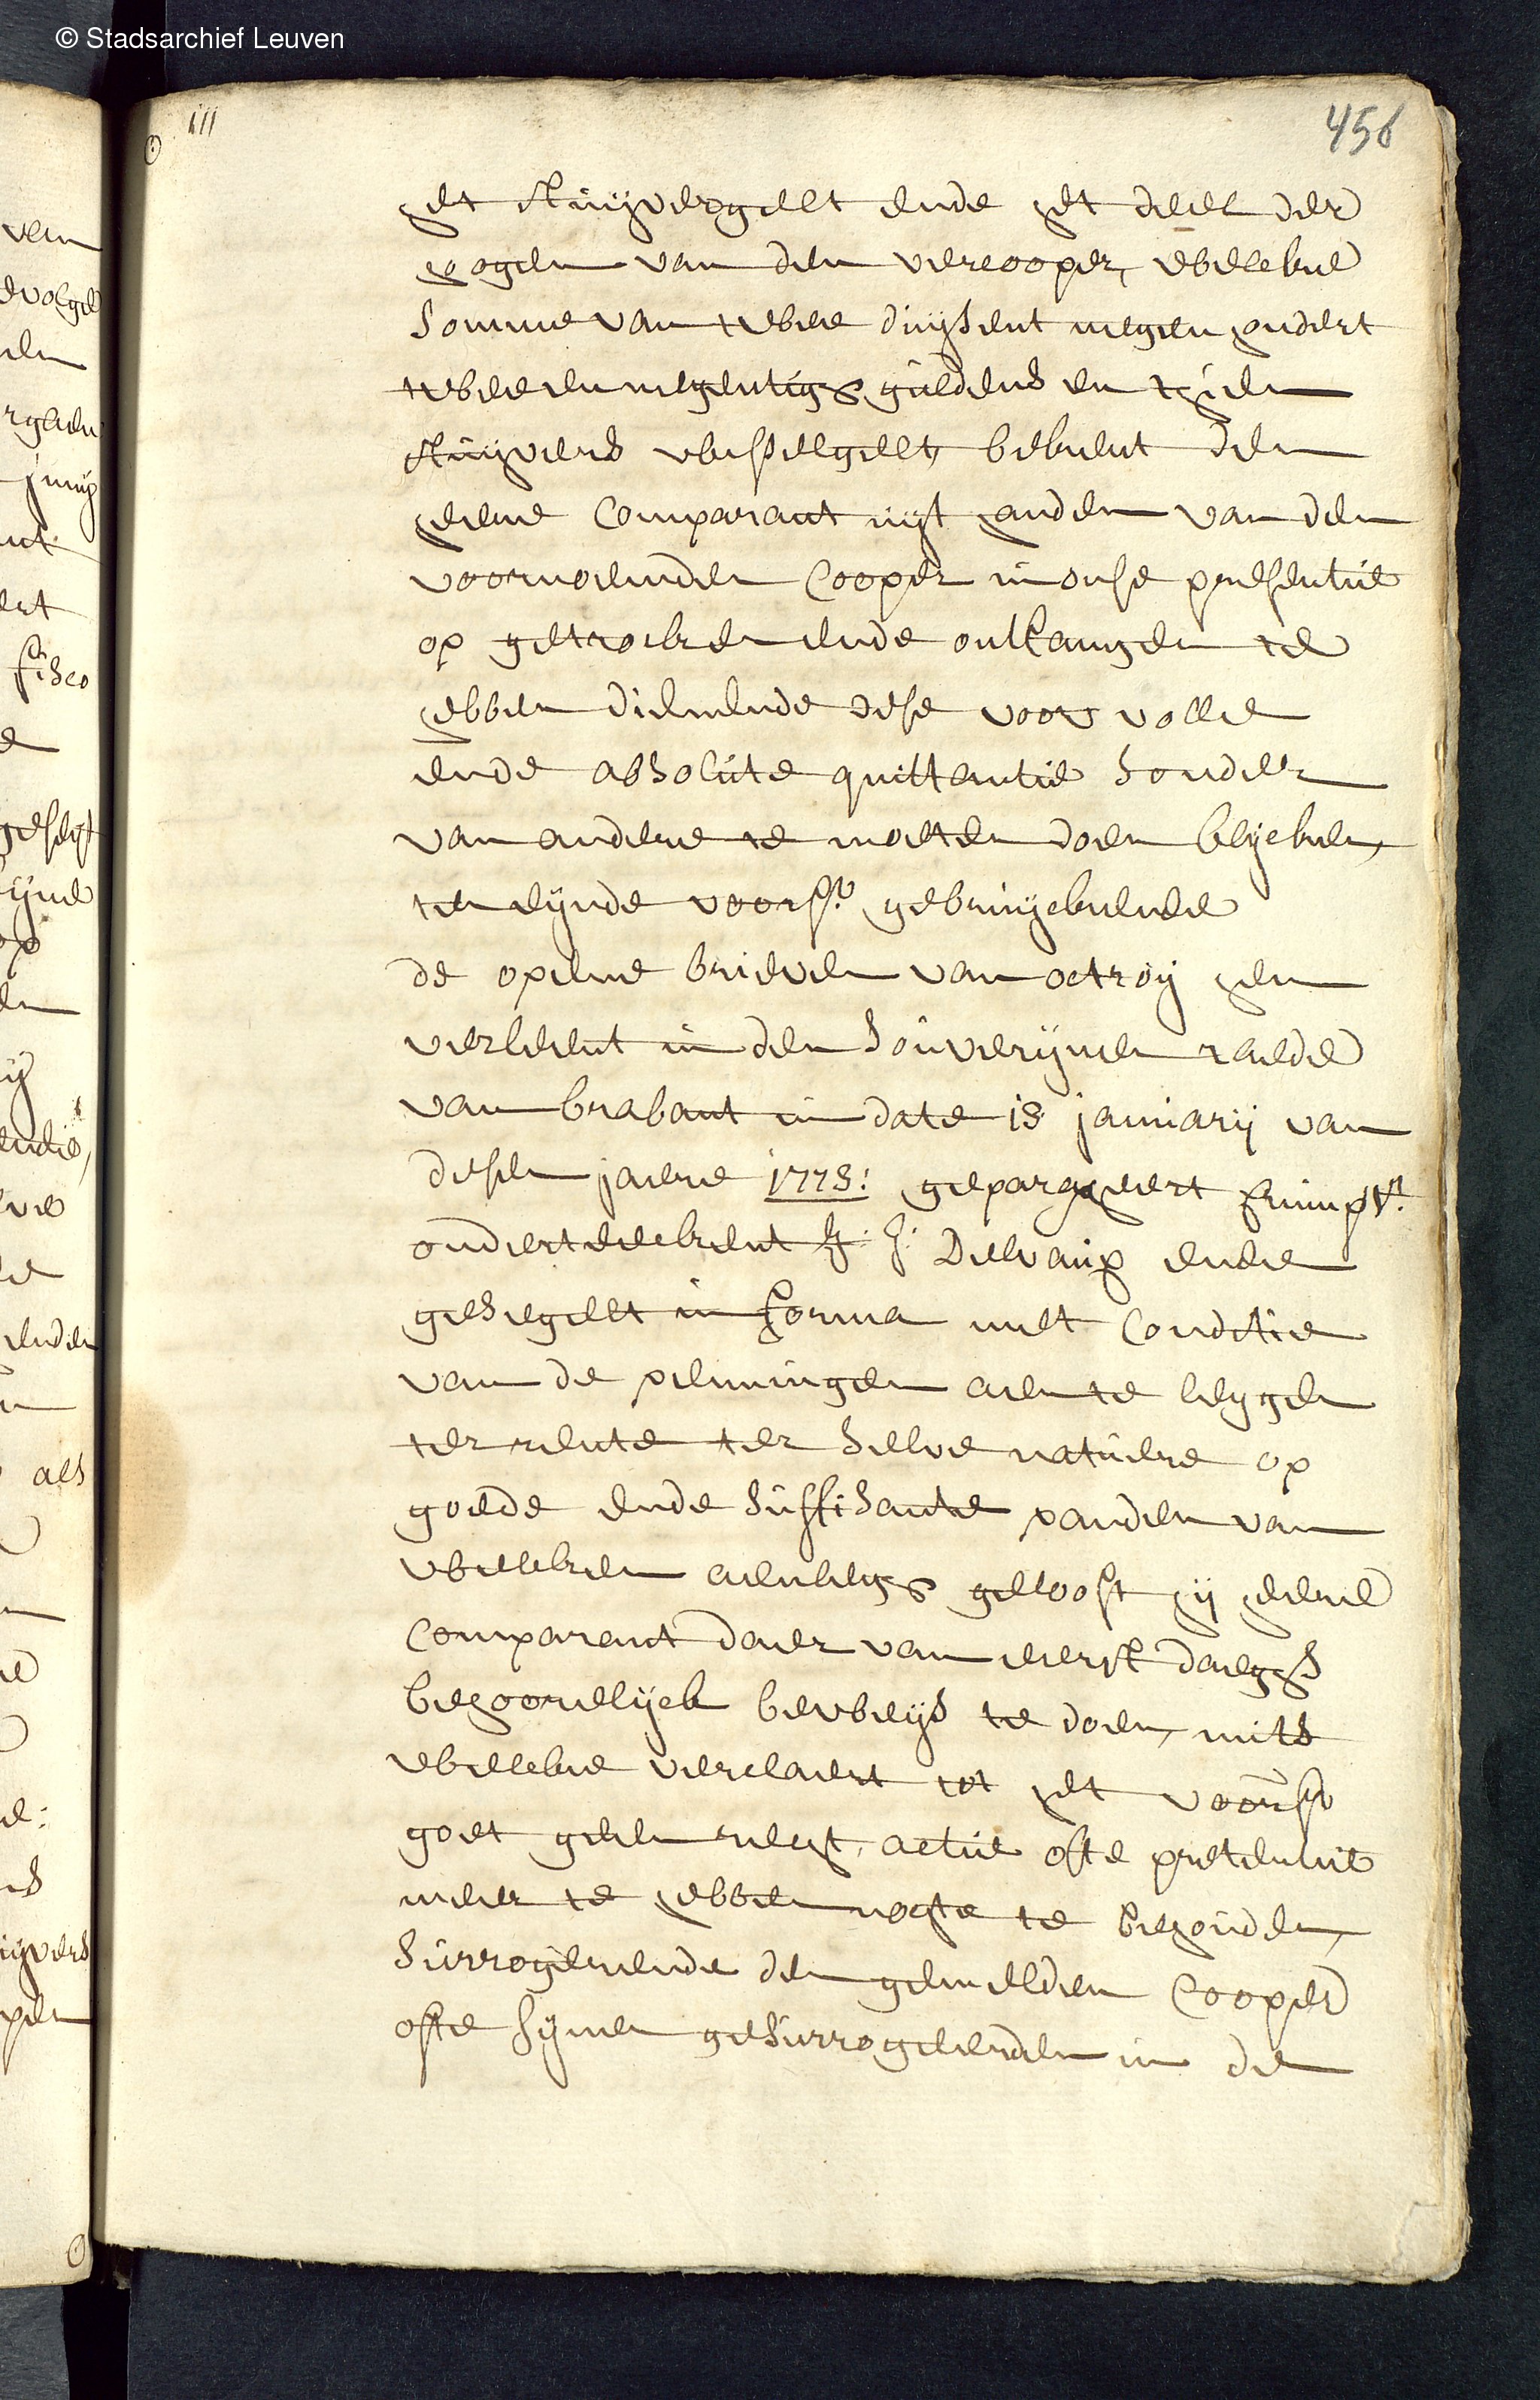 © Stadsarchief Leuven
111
456
het stuijvergelt ende het deel der
hogen van den vercooper, welcke
somme van twee duijsent negen hondert
tweeennegentigh guldens en thien
stuijvers wisselgelt, bekent den
heere Comparant uijt handen van den
voornoemden Cooper in onse presentie
op getrocken ende ontfangen te
hebben dienende dese voor volle
ende absolute quittantie sonder
van andere te moeten doen blijcken,
ten eijnde voors: gebruijckende
de opene brieven van octroij hem
verleent in den souverijnen raede
van brabant in date 18 januarij van
desen jaere 1773: geparapheert
onderteeckent J: J: Delvaux ende
gesegelt in forma met conditie
van de penningen aen te leggen
ter rente ter selve natuere op
goede ende suffisante panden van
welcken aenlegh gelooft hij heere
Comparant daer van eerst daeghs
behoorelijck beweijs te doen, mits
welcke verclaert tot het voors:
goet geen recht, actie ofte pretentie
meer te hebben nochte te behouden,
surrogerende den gemelden Cooper
ofte sijnen gesurrogeerden in de